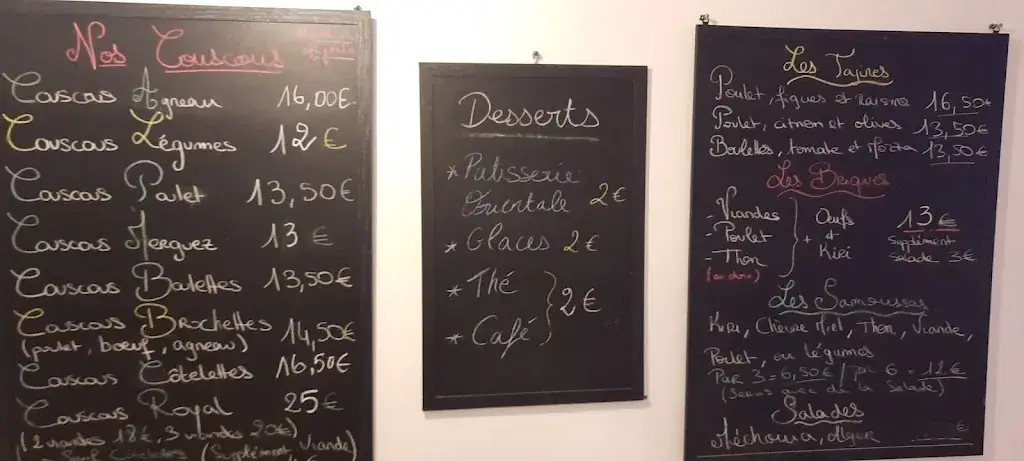 Nos Couscous
Couscous Agneau 16,00€
Couscous Légumes 12€
Couscous Poulet 13,50€
Couscous Merguez 13€
Couscous Boulettes 13,50€
Couscous Brochettes 14,50€
(poulet, boeuf, agneau)
Couscous Côtelettes 16,50€
Couscous Royal 25€
(2 viandes 18€, 3 viandes 20€)
(Supplément Viande)
Desserts
* Patisserie
Orientale 2€
* Glaces 2€
* Thé
* Café } 2€
Les Tajines
Poulet, figues et raisins 16,50€
Poulet, citron et olives 13,50€
Boulettes, tomate et 13,50€
Les Briques
- Viandes
- Poulet
- Thon
(au choix)
+ Oeufs
+
Kiri
13€
Supplément
Salade 3€
Les Samoussas
Kiri, Chèvre Miel, Thon, Viande,
Poulet, ou légumes
Par 3 = 6,50€ / par 6 = 12€
(Servis avec de la Salade)
Salades
Méchouia, Alger €